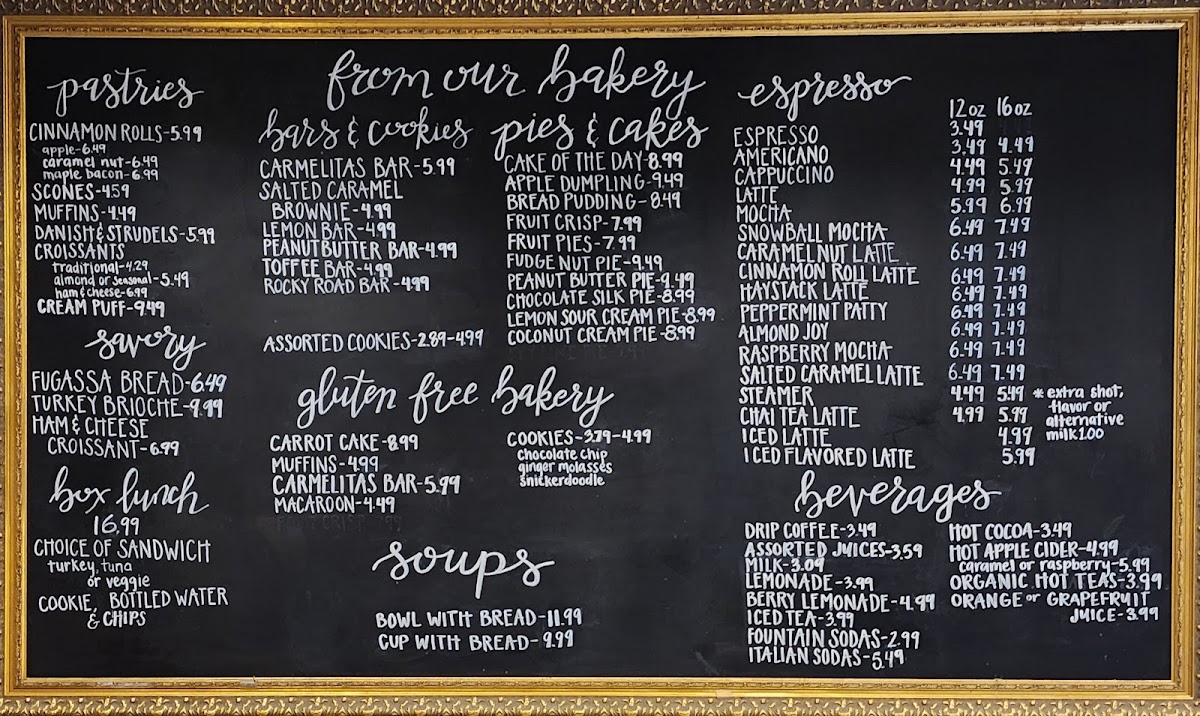 from our bakery
pastries
CINNAMON ROLLS-5.99
apple-6.49
caramel nut-6.49
maple bacon-6.99
SCONES-4.59
MUFFINS-4.49
DANISH & STRUDELS-5.99
CROISSANTS
traditional-4.29
almond or seasonal-5.49
ham & cheese-6.99
CREAM PUFF-9.49
savory
FUGASSA BREAD-6.49
TURKEY BRIOCHE-9.99
HAM & CHEESE
CROISSANT-6.99
box lunch
16.99
CHOICE OF SANDWICH
turkey, tuna
or veggie
COOKIE, BOTTLED WATER
& CHIPS
bars & cookies
CARMELITAS BAR-5.99
SALTED CARAMEL
BROWNIE-4.99
LEMON BAR-4.99
PEANUT BUTTER BAR-4.99
TOFFEE BAR-4.99
ROCKY ROAD BAR-4.99
ASSORTED COOKIES-2.89-4.99
pies & cakes
CAKE OF THE DAY-8.99
APPLE DUMPLING-9.49
BREAD PUDDING-8.49
FRUIT CRISP-7.99
FRUIT PIES-7.99
FUDGE NUT PIE-9.49
PEANUT BUTTER PIE-9.49
CHOCOLATE SILK PIE-8.99
LEMON SOUR CREAM PIE-8.99
COCONUT CREAM PIE-8.99
gluten free bakery
CARROT CAKE-8.99
MUFFINS-4.99
CARMELITAS BAR-5.99
MACAROON-4.49
COOKIES-3.79-4.99
chocolate chip
ginger molasses
snickerdoodle
soups
BOWL WITH BREAD-11.99
CUP WITH BREAD-9.99
espresso
12oz 16oz
ESPRESSO 3.49
AMERICANO 3.49 4.49
CAPPUCCINO 4.49 5.49
LATTE 4.99 5.99
MOCHA 5.99 6.99
SNOWBALL MOCHA 6.49 7.49
CARAMEL NUT LATTE 6.49 7.49
CINNAMON ROLL LATTE 6.49 7.49
HAYSTACK LATTE 6.49 7.49
PEPPERMINT PATTY 6.49 7.49
ALMOND JOY 6.49 7.49
RASPBERRY MOCHA 6.49 7.49
SALTED CARAMEL LATTE 6.49 7.49
STEAMER 4.49 5.49
CHAI TEA LATTE 4.99 5.99
ICED LATTE 4.99
ICED FLAVORED LATTE 5.99
* extra shot,
flavor or
alternative
milk 1.00
beverages
DRIP COFFEE-3.49
ASSORTED JUICES-3.59
MILK-3.09
LEMONADE-3.99
BERRY LEMONADE-4.99
ICED TEA-3.99
FOUNTAIN SODAS-2.99
ITALIAN SODAS-5.49
HOT COCOA-3.49
HOT APPLE CIDER-4.99
caramel or raspberry-5.99
ORGANIC HOT TEAS-3.99
ORANGE or GRAPEFRUIT
JUICE-3.99